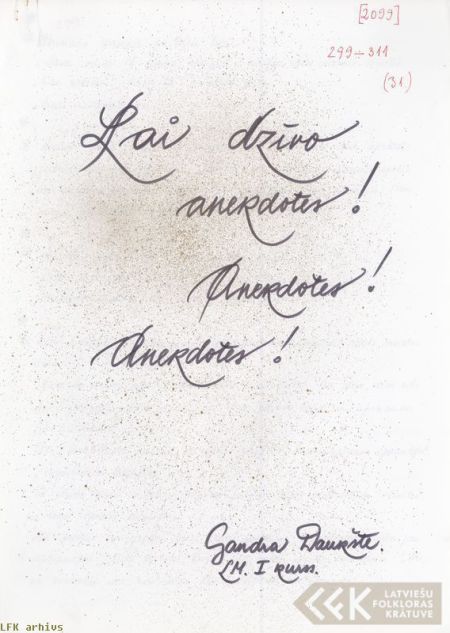 [2099]
299÷311
(31)
Lai dzīvo
anekdotes!
Anekdotes!
Anekdotes!
Sandra Daukšte.
LM. I kurs.
LATVIEŠU
FOLKLORAS
KRĀTUVE
LFK arhīvs